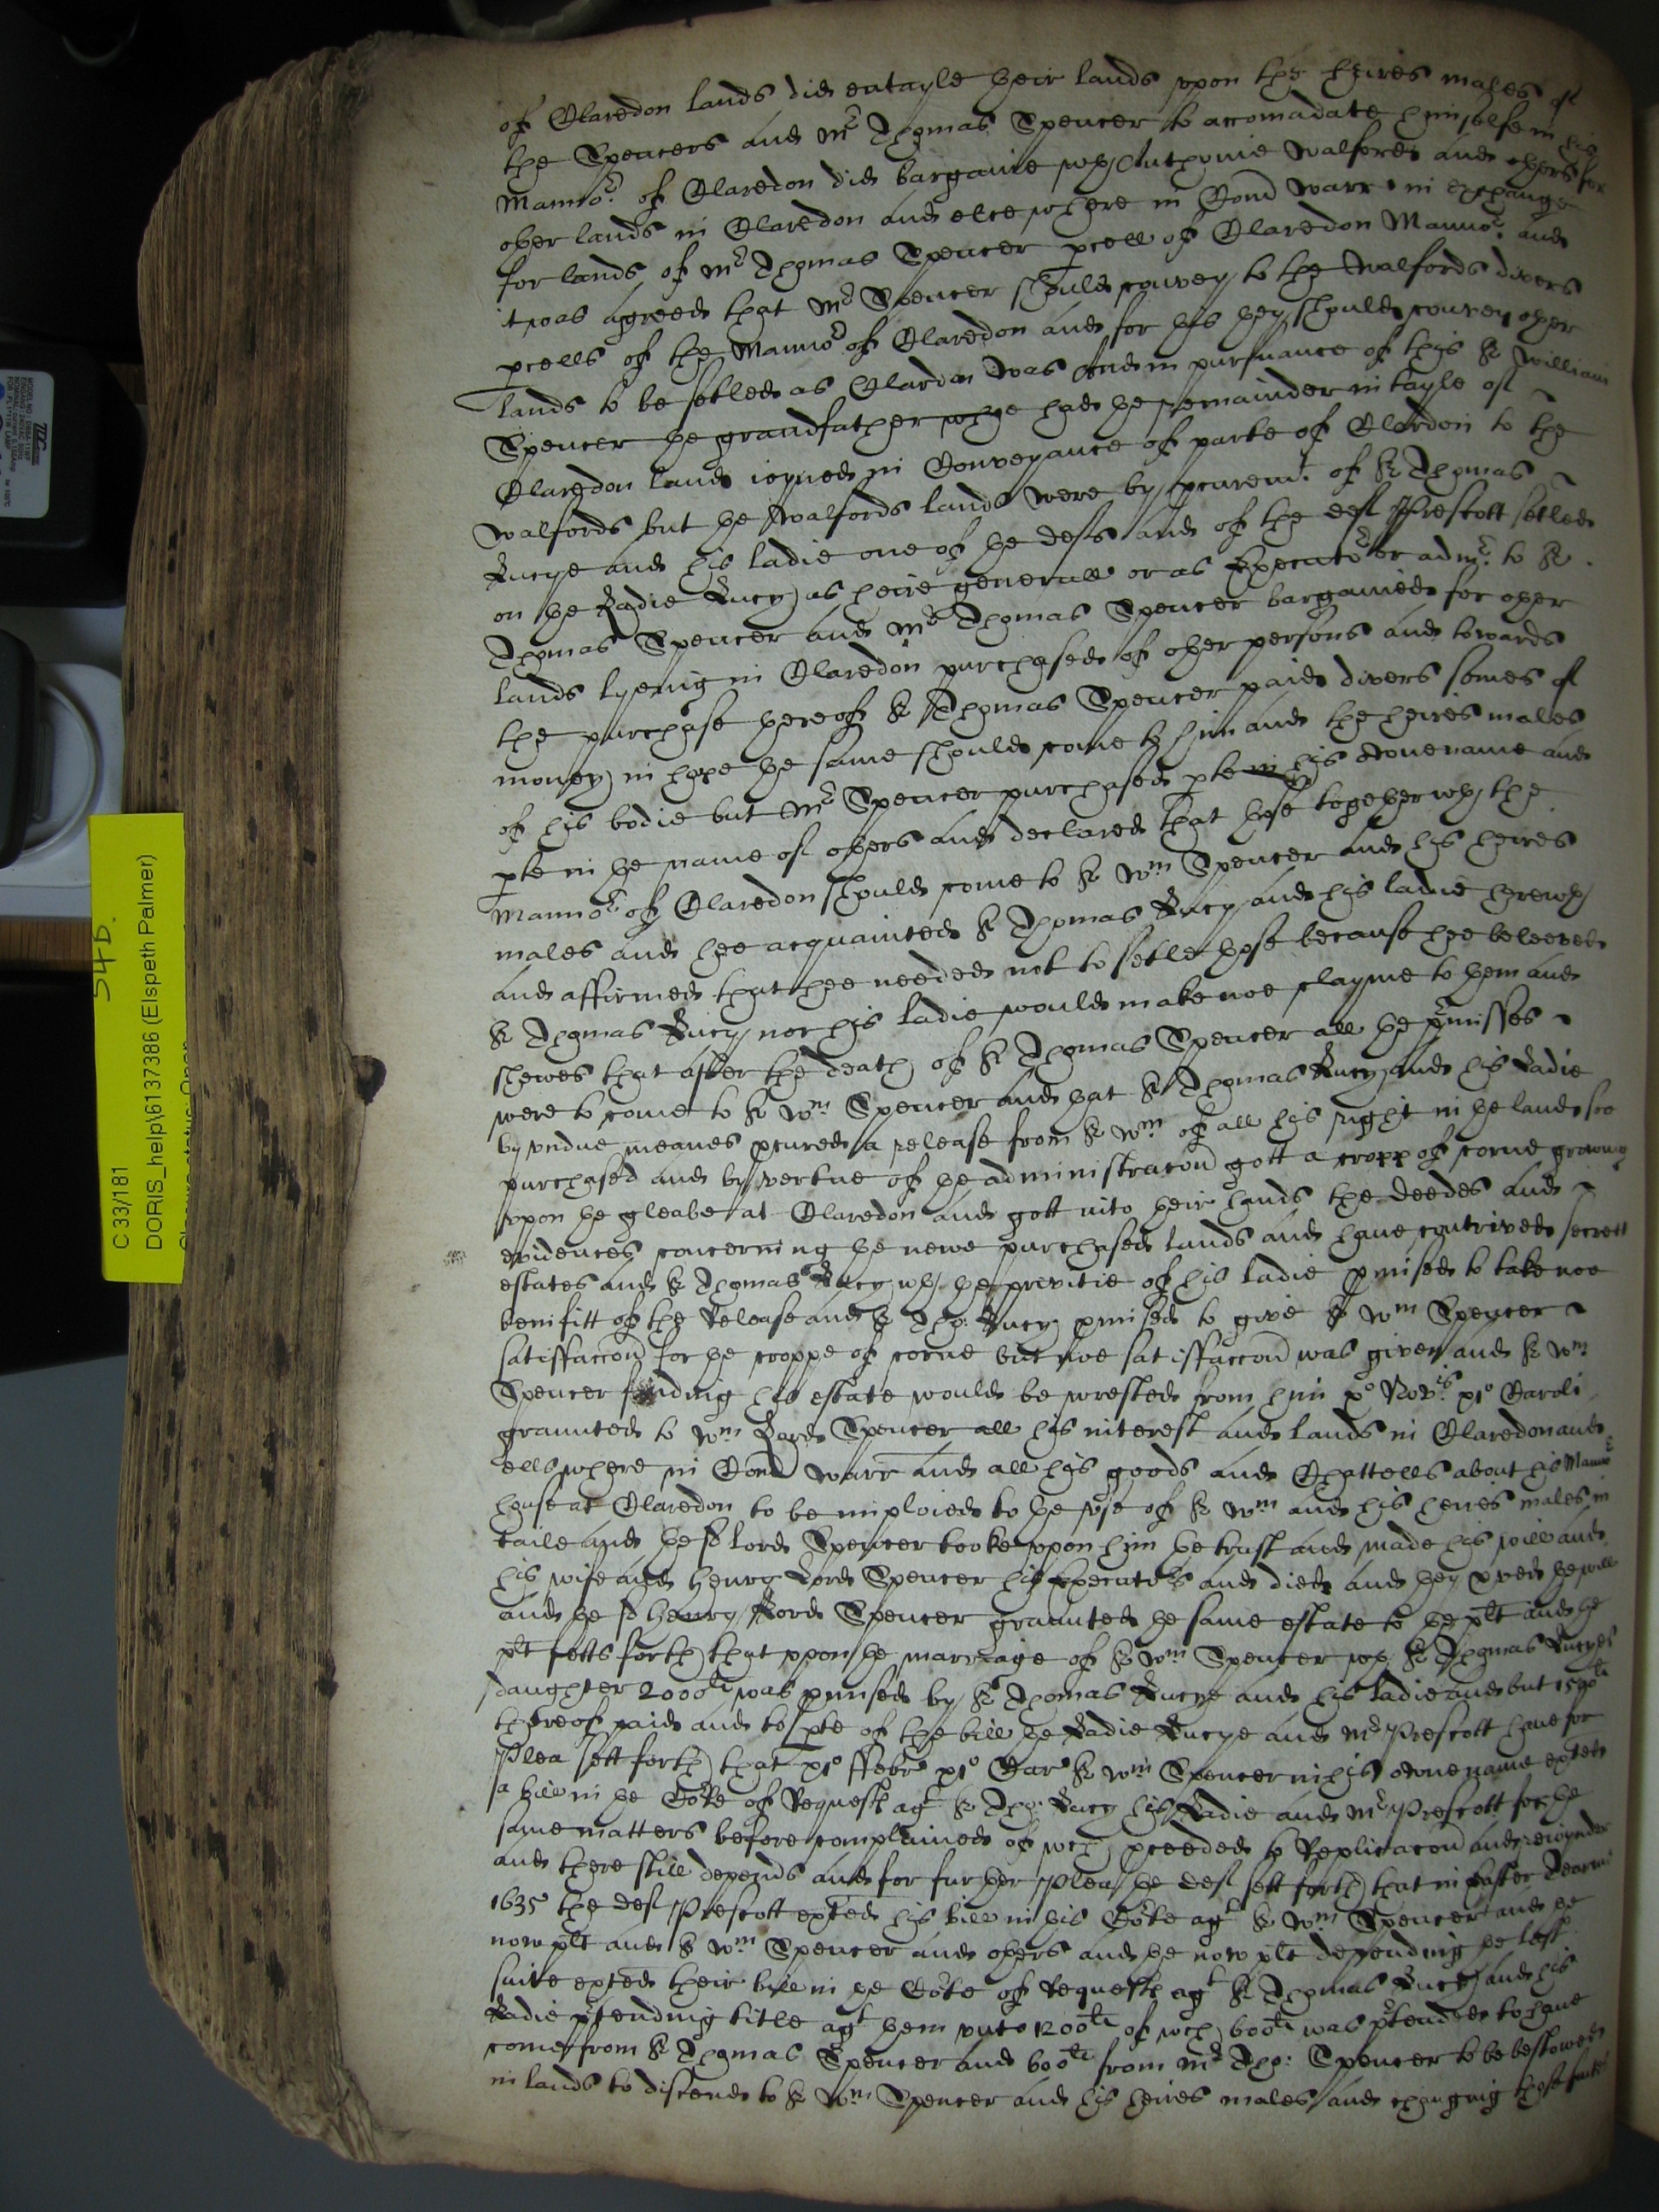 of Claredon lands did entayle their lands upon the heires males of
the Spencers and Mr Thomas Spencer to accomadate himselfe in his
Manno.r of Claredon did bargaine wth Anthonie Walford and others for
other lands in Claredon and elce where in Com̄ Warr in exchange
for lands of Mr Thomas Spencer pcell of Claredon Manno.r and
it was agreed that Mr Spencer should convey to the Walfords divers
pcells of the Manno.r of Claredon and for this they should convey their
lands to be setled as Clardon was And in pursuance of this Sr William
Spencer the grandfather whoe had the remainder in tayle of
Claredon lands ioyned in Conveyance of parte of Clardon to the
Walfords but the Walfords lands were by pcurem.t of Sr Thomas
Lucye and his ladie one of the defts and of the deft Prescott setled
on the Ladie Lucy as heire generall or as Executor or adm.r to Sr
Thomas Spencer and Mr Thomas Spencer bargained for other
lands lyeing in Claredon purchased of other persons and towards
the purchase thereof Sr Thomas Spencer paid divers somes of
money in hope the same should come to him and the heires males
of his bodie but Mr Spencer purchased pte in his owne name and
pte in the name of others and declared that those together wth the
Manno.r of Claredon should come to Sr Wm Spencer and his heires
males and hee acquainted Sr Thomas Lucy and his ladie therewth
and affirmed that hee needed not to setle those because hee beleeved
Sr Thomas Lucy nor his ladie would make noe clayme to them and
shewes that after the death of Sr Thomas Spencer all the pmisses
were to come to Sr Wm Spencer and that Sr Thomas Lucy and his Ladie
by undue meanes pcured a release from Sr Wm of all his right in the lands soe
purchased and by vertue of the administracon gott a cropp of corne growing
upon the gleabe at Claredon and gott into their hands the deedes and
evidences concerning the newe purchased lands and have contrived secrett
estates and Sr Thomas Lucy wth the privitie of his ladie pmised to take noe
benifitt of the Release and Sr Tho: Lucy pmised to give Sr Wm Spencer
satisfaccon for the croppe of corne but noe satisfaccon was given and Sr Wm
Spencer finding his estate would be wrested from him po Novris po Caroli
graunted to Wm Lord Spencer all his interest and lands in Claredon and
ells where in Com̄ Warr and all his goods and Chattells about his Manno.r
house at Claredon to be imploied to the use of Sr Wm and his heires males in
taile and the sd Lord Spencer tooke upon him the trust and made his will and
his wife and Henry Lord Spencer his Executors and died and they pved the will
and the sd Henry Lord Spencer graunted the same estate to the plt and the
plt setts forth that upon the marriage of Sr Wm Spencer wth Sr Thomas Lucyes
daughter 2000li was pmised by Sr Thomas Lucye and his ladie and but 1500li
thereof paid and to pte of the bill the Ladie Lucye and Mr Prescott have for
Plea sett forth that Febr Car Sr Wm Spencer in his owne name exted
a bill in the Cote of Request agt Sr Tho: Lucy his Ladie and Mr Prescott for the
same matters before complained of wch pceeded to Replicacon and reioynder
and there still depends and for further Plea the deft sett forth that in Easter Tearme
1635 the deft Prescott exted his bill in this Cote agt Sr Wm Spencer and the
now plt and Sr Wm Spencer and others and the now plt depending the last
suite exted their bill in the Cote of Requests agt Sr Thomas Lucy and his
Ladie ptending title agt them unto 1200li of wch 600li was ptended to have
come from Sr Thomas Spencer and 600li from Mr Tho: Spencer to be bestowed
in lands to discend to Sr Wm Spencer and his heires males and those suites
54D.
C 33/181
DORIS_help\6137386 (Elspeth Palmer)